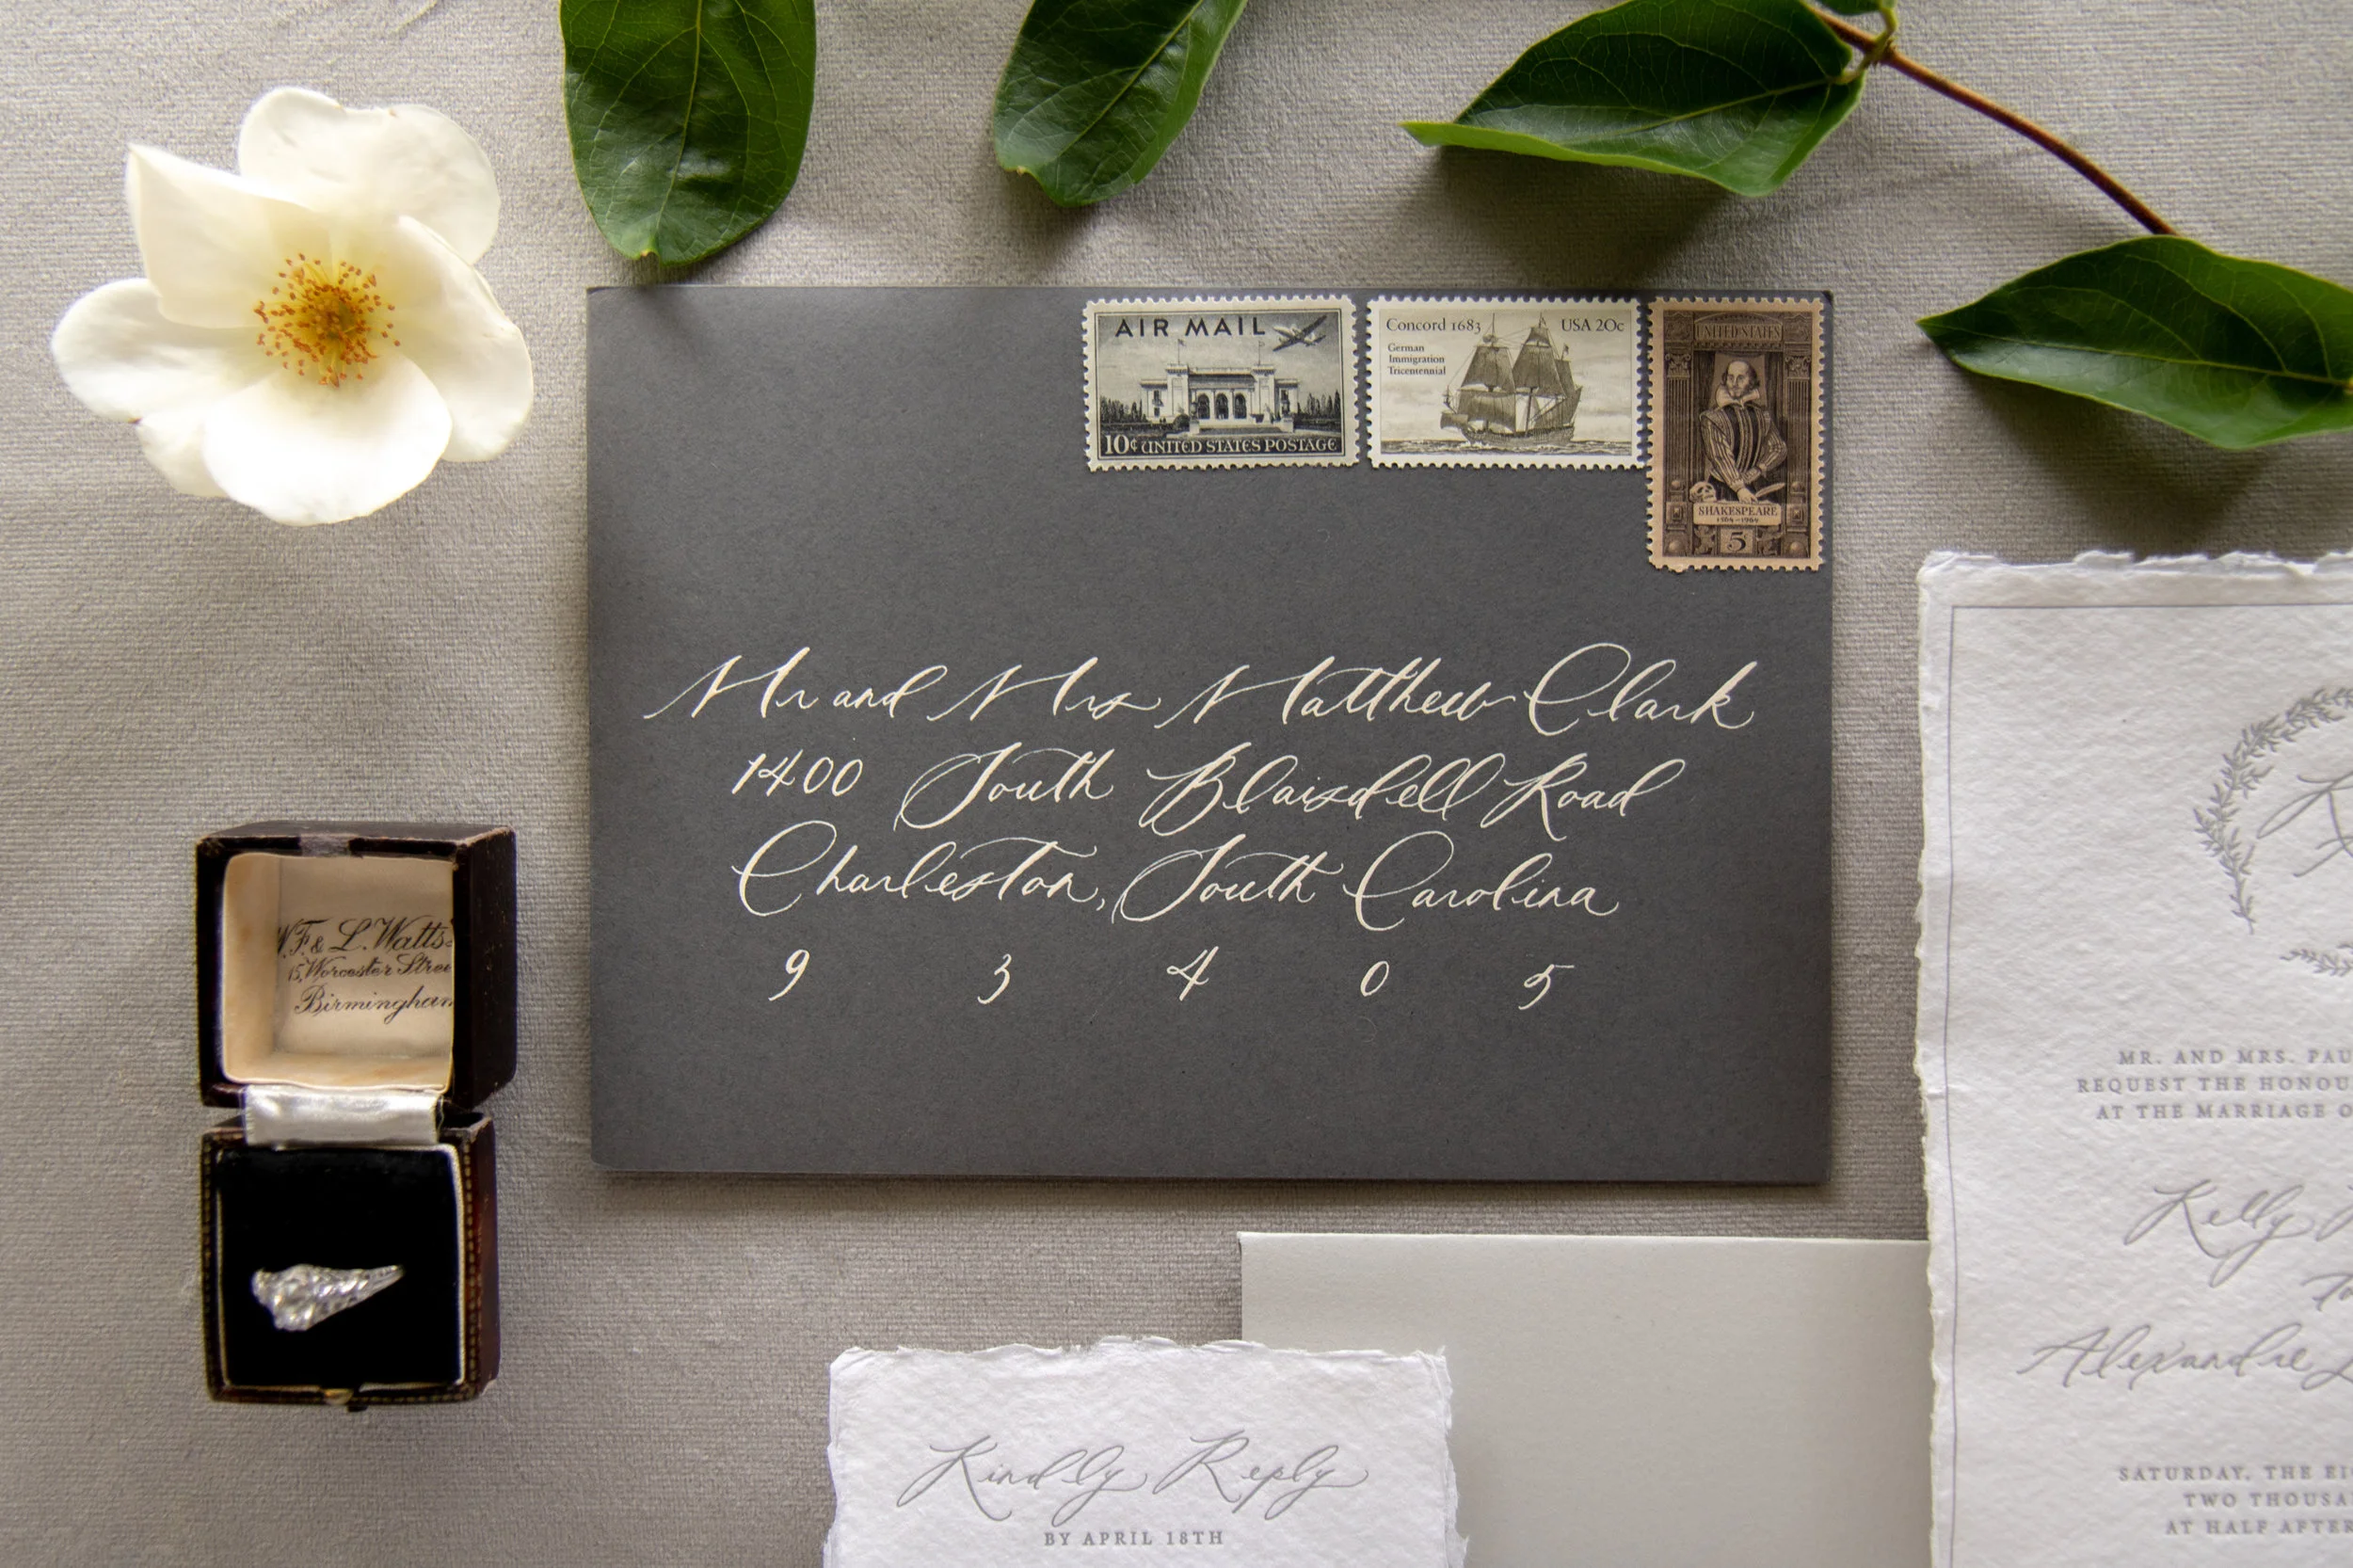 AIR MAIL
10¢ UNITED STATES POSTAGE
Concord 1683 USA 20c
German
Immigration
Tricentennial
UNITED STATES
SHAKESPEARE
1564-1964
5
Mr and Mrs Matthew Clark
1400 South Blaisdell Road
Charleston, South Carolina
9 3 4 0 5
W.F. & L. Watts
15, Worcester
Birmingham
MR. AND MRS.
REQUEST THE
AT THE MARRIAGE
Kelly
Alexandre
SATURDAY, THE
TWO
AT HALF AFTER
Kindly Reply
BY APRIL 18TH